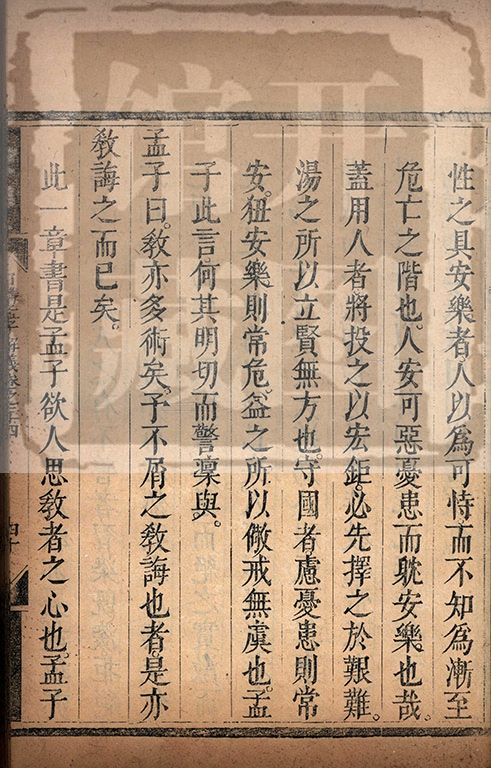 性之具安樂者人以為可恃而不知為漸至
危亡之階也。人安可惡憂患而躭安樂也哉。
蓋用人者將投之以宏鉅。必先擇之於艱難。
湯之所以立賢無方也。守國者慮憂患則常
安。狃安樂則常危。益之所以儆戒無虞也。孟
子此言何其明切而警凜與。
孟子曰。敎亦多術矣。予不屑之敎誨也者。是亦
敎誨之而已矣。
此一章書是孟子欲人思敎者之心也。孟子